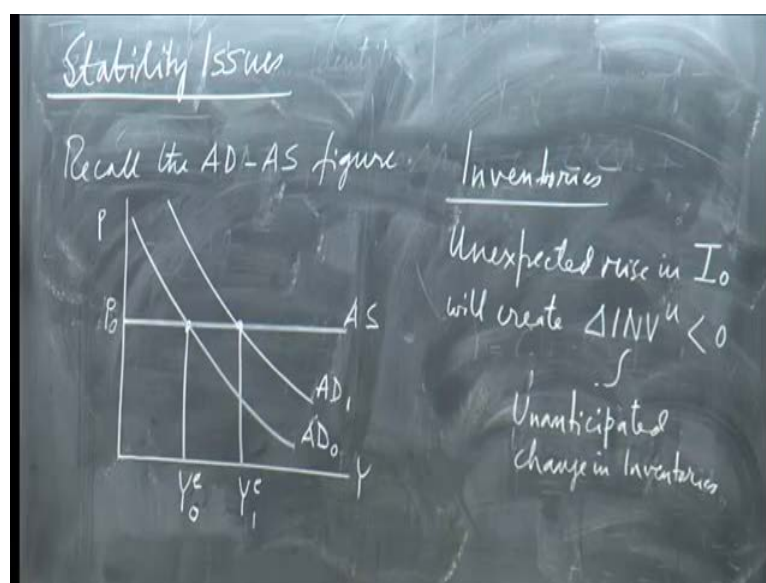 Stability Issues
Recall the AD-AS figure.
P
P₀
AS
AD₁
AD₀
Y₀ᵉ
Y₁ᵉ
Y
Inventories
Unexpected rise in I₀
will create ΔINVᵘ < 0
Unanticipated
change in Inventories